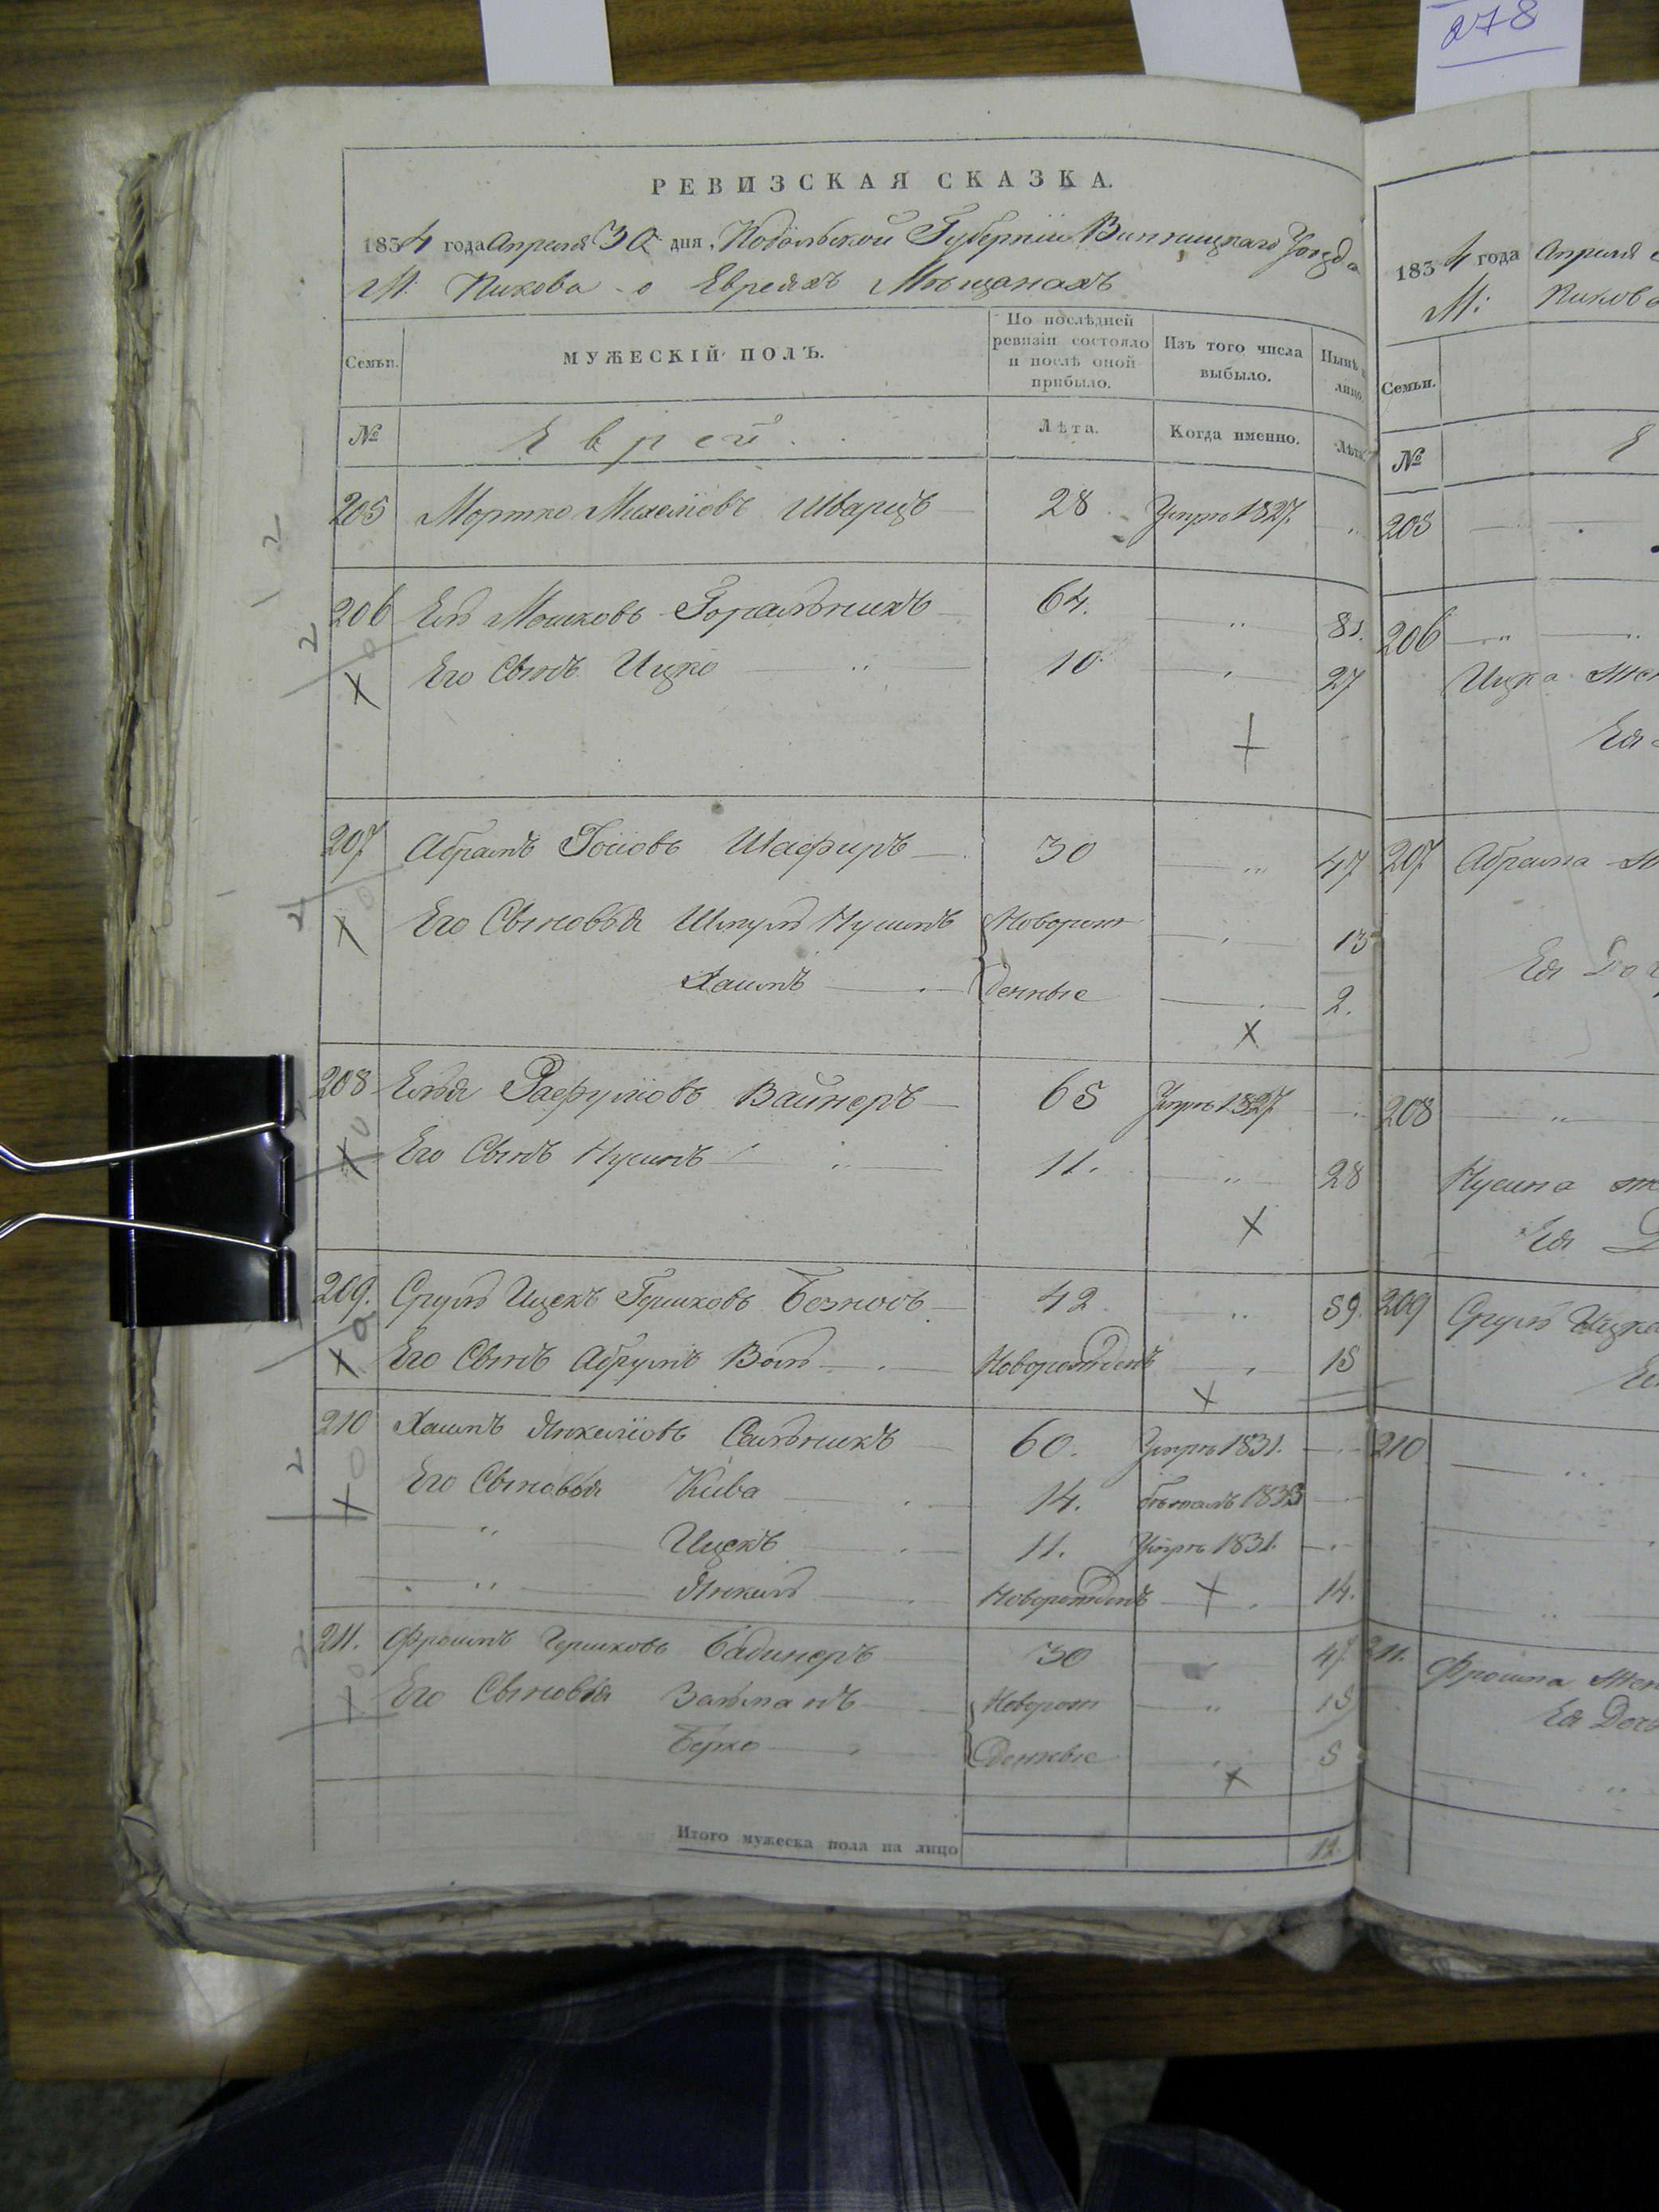 278
РЕВИЗСКАЯ СКАЗКА.
1834 года Апреля 30 дня, Подольской Губернїи Винницкаго Уезда
М: Пикова о Евреяхъ Мещанахъ
Семьи.
МУЖЕСКІЙ ПОЛЪ.
По послѣдней ревизіи состояло и послѣ оной прибыло.
Изъ того числа выбыло.
Нынѣ лицо.
№ Еврей. Лѣта. Когда именно. Лѣта.
205 Мортко Михелїовъ Шварцъ 28 Умре 1827.
206 Ель Мошковъ Горальникъ 64. 81.
Его Сынъ Ицко 10. 27
207 Абрамъ Іосїовъ Шафиръ 30 47
Его Сыновья Шмуль Нусинъ Новорож 15
Хаимъ денные 2.
208 Рафулїовъ Вайнеръ 65 Умре 1827
Его Сынъ Нусинъ 11. 28
209. Сруль Ицекъ Гершковъ 42 59.
Его Сынъ Абрумъ Воль Новорожденъ 15
210 Хаимъ Янкелїовъ Сальникъ 60. Умре 1831.
Его Сыновья Кива 14. бежалъ 1833
Ицекъ 11. Умре 1831.
Янкель Новорожденъ 14.
211. Фроимъ Гершковъ 30 47
Его Сыновья Зальманъ Новорож 15
Берко денные 5
Итого мужеска пола на лицо 12.
1834 года Апреля
М: Пикова
Семьи.
№ Е
205
206
Ицка жен
Ея
207 Абрама
Ея Доч
208
Нусина
Ея
209 Сруль Ицка
210
211. Фроима жен
Ея Доч